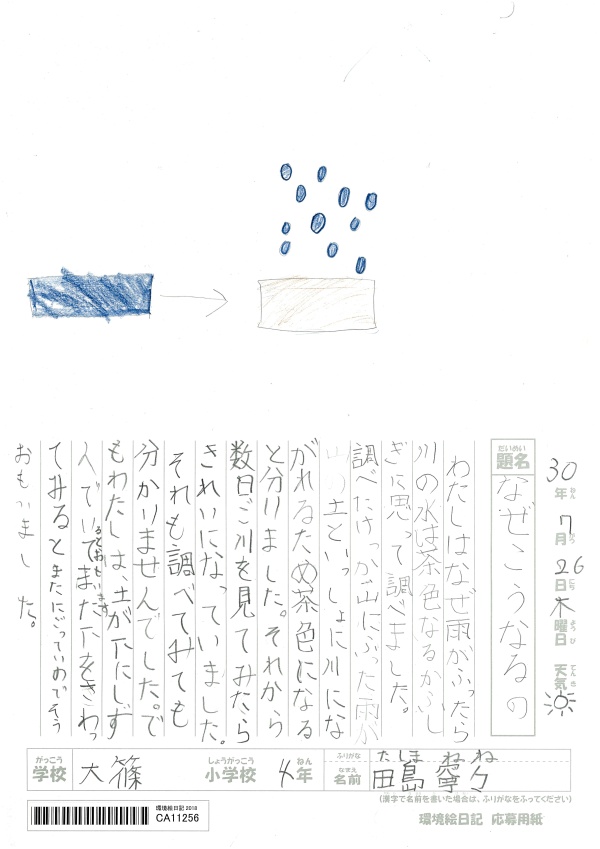 30年ねん 7月がつ 26日にち 木曜日ようび 天気てんき
題名だいめい なぜこうなるの
わたしはなぜ雨がふったら
川の水は茶色なるかふし
ぎに思って調べました。
調べたけっか山にふった雨が
土といっしょに川にな
がれるため茶色になる
と分りました。それから
数日ご川を見てみたら
きれいになっていました。
それも調べてみても
分かりませんでした。で
もわたしは、土が下にしず
んでいるとおもいます。また下をさわっ
てみるとまたにごっていのでそう
おもいました。
学校がっこう 大篠 小学校しょうがっこう 4年ねん
ふりがな たしま ねね
名前なまえ 田島寧々
(漢字で名前を書いた場合は、ふりがなをふってください)
環境絵日記2018
CA11256
環境絵日記 応募用紙